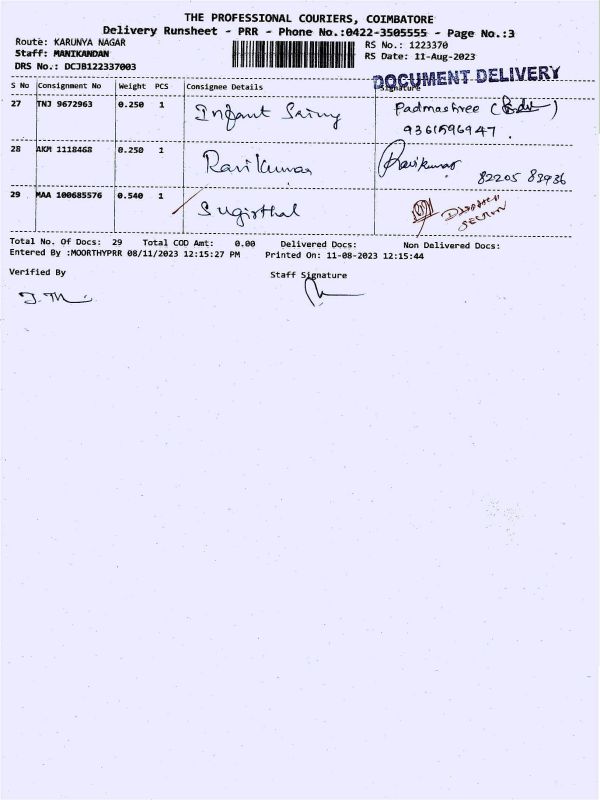 THE PROFESSIONAL COURIERS, COIMBATORE
Delivery Runsheet - PRR - Phone No.:0422-3505555 - Page No.:3
Route: KARUNYA NAGAR RS No.: 1223370
Staff: MANIKANDAN RS Date: 11-Aug-2023
DRS No.: DCJB122337003
DOCUMENT DELIVERY
S No Consignment No Weight PCS Consignee Details Signature
27 TNJ 9672963 0.250 1 Infant Padmashree
9361596947.
28 AKM 1118468 0.250 1 Ravikumar Ravikumar
82205 83936
29 MAA 100685576 0.540 1 Sugirthal
SECTION
Total No. Of Docs: 29 Total COD Amt: 0.00 Delivered Docs: Non Delivered Docs:
Entered By :MOORTHYPRR 08/11/2023 12:15:27 PM Printed On: 11-08-2023 12:15:44
Verified By Staff Signature